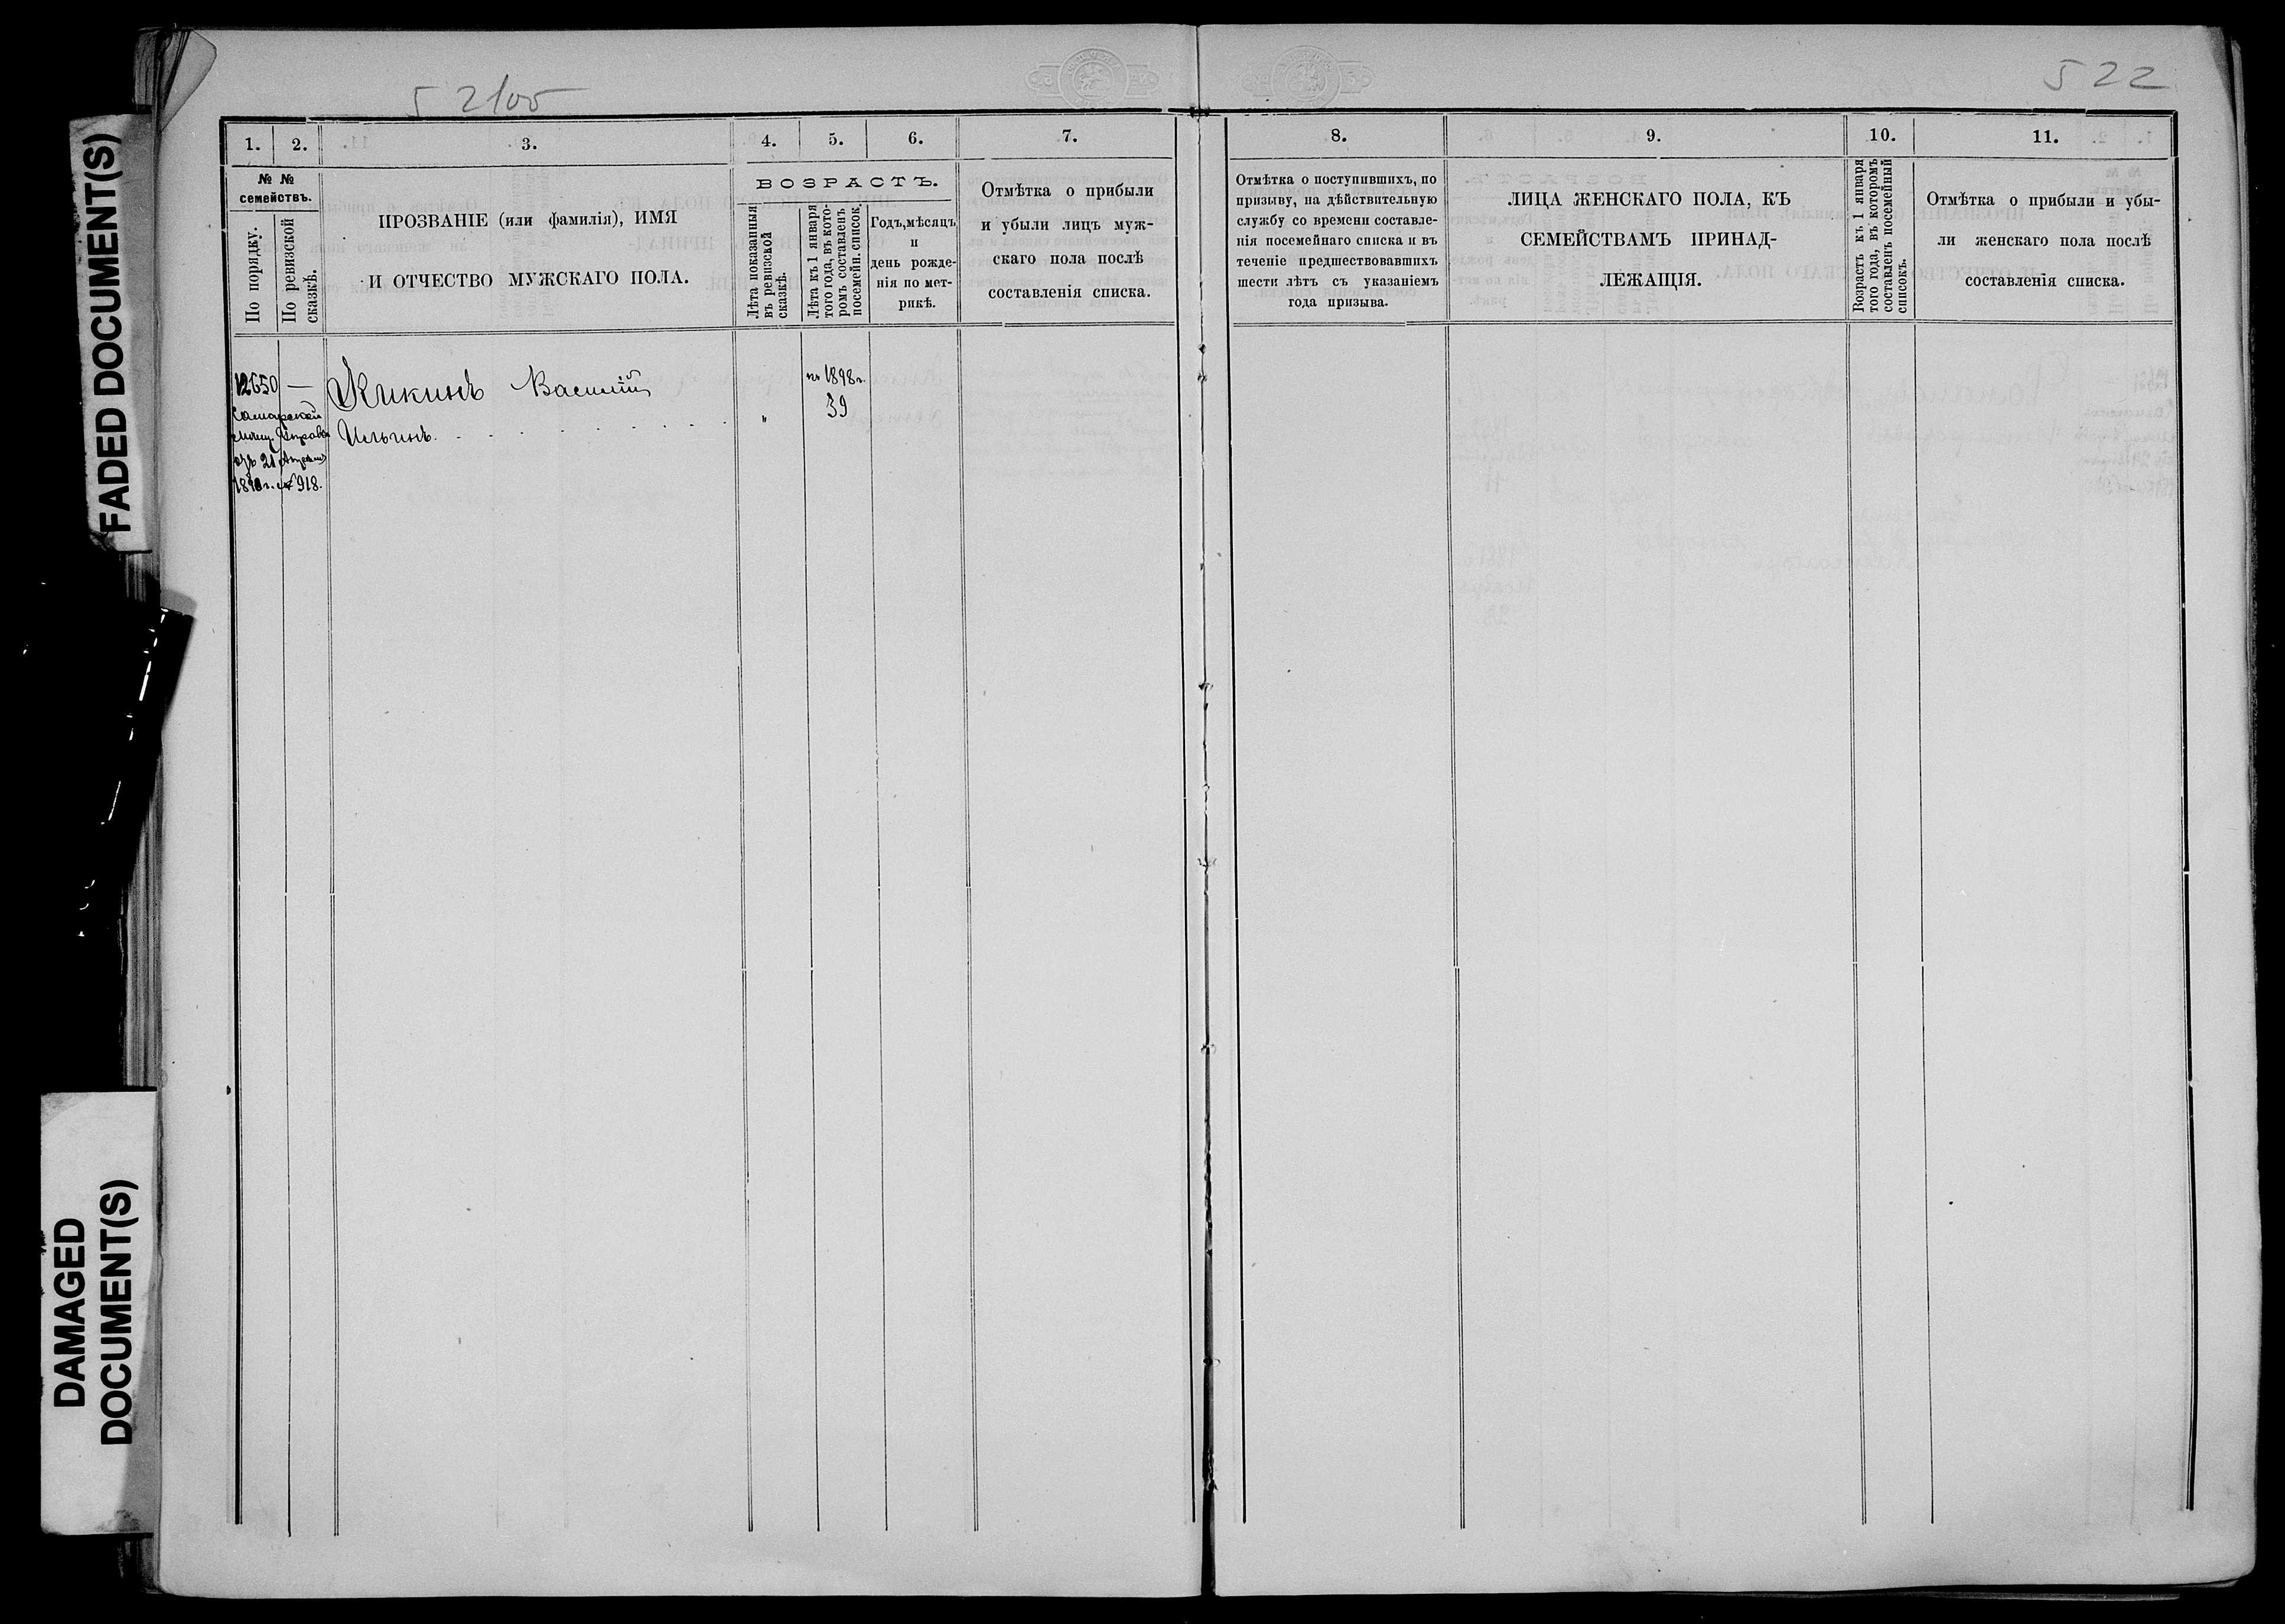 FADED DOCUMENT(S)
DAMAGED
DOCUMENT(S)
52100
522
1.
2.
3.
4.
5.
6.
7.
8.
9.
10.
11.
№ №
семействъ.
По порядку.
По ревизской
сказкѣ.
ПРОЗВАНІЕ (или фамилія), ИМЯ
И ОТЧЕСТВО МУЖСКАГО ПОЛА.
ВОЗРАСТЪ.
Лѣта показанныя
въ ревизской
сказкѣ.
Лѣта къ 1 января
того года, въ кото-
ромъ составленъ
посемейн. список.
Годъ, мѣсяцъ
и
день рожде-
нія по мет-
рикѣ.
Отмѣтка о прибыли
и убыли лицъ муж-
скаго пола послѣ
составленія списка.
Отмѣтка о поступившихъ, по
призыву, на дѣйствительную
службу со времени составле-
нія посемейнаго списка и въ
теченіе предшествовавшихъ
шести лѣтъ съ указаніемъ
года призыва.
ЛИЦА ЖЕНСКАГО ПОЛА, КЪ
СЕМЕЙСТВАМЪ ПРИНАД-
ЛЕЖАЩІЯ.
Возрастъ къ 1 января
того года, въ которомъ
составленъ посемейный
списокъ.
Отмѣтка о прибыли и убы-
ли женскаго пола послѣ
составленія списка.
12650 —
Самарской
Мѣщ. Управы
21 Апрѣля
1898 г. № 918.
Кикинъ Василій
Ильинъ.
"
1898 г.
39